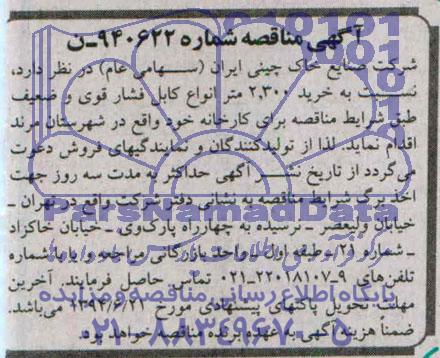 آگهی مناقصه شماره ۹۴۰۶۲۲-ن
شرکت صنایع خاک چینی ایران (سهامی عام) در نظر دارد،
نسبت به خرید ۲,۳۰۰ متر انواع کابل فشار قوی و ضعیف
طبق شرایط مناقصه برای کارخانه خود واقع در شهرستان مرند
اقدام نماید. لذا از تولیدکنندگان و نمایندگیهای فروش دعوت
می‌گردد از تاریخ نشر آگهی حداکثر به مدت سه روز جهت
اخذ برگ شرایط مناقصه به نشانی دفتر شرکت واقع در تهران ـ
خیابان ولیعصر ـ نرسیده به چهارراه پارک‌وی ـ خیابان خاکزاد
ـ شماره ۲۱ ـ طبقه اول ـ واحد بازرگانی مراجعه و یا با شماره
تلفن‌های ۹-۲۲۰۱۸۱۰۷-۰۲۱ تماس حاصل فرمایند. آخرین
مهلت تحویل پاکتهای پیشنهادی مورخ ۱۳۹۴/۶/۲۱ می‌باشد.
ضمناً هزینه آگهی به عهده برنده مناقصه خواهد بود.
ParsNamadData
پایگاه اطلاع رسانی مناقصه و مزایده
۰۲۱-۸۸۳۴۹۶۷۰-۵